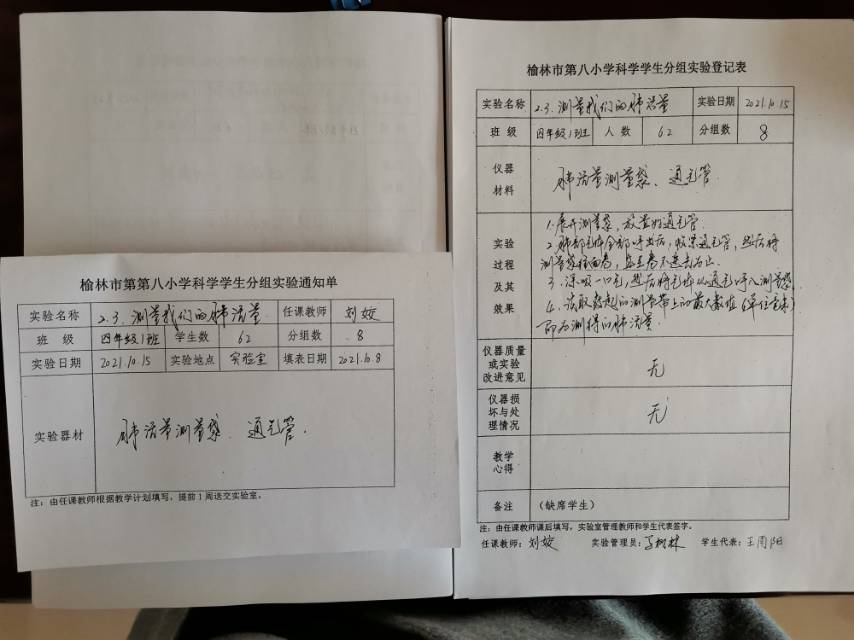 榆林市第八小学科学学生分组实验通知单
实验名称 2.3.测量我们的肺活量 任课教师 刘姣
班 级 四年级1班 学生数 62 分组数 8
实验日期 2021.10.15 实验地点 实验室 填表日期 2021.10.8
实验器材 肺活量测量袋、通气管.
注：由任课教师根据教学计划填写，提前1周送交实验室。
榆林市第八小学科学学生分组实验登记表
实验名称 2.3.测量我们的肺活量 实验日期 2021.10.15
班 级 四年级1班 人 数 62 分组数 8
仪器
材料
肺活量测量袋、通气管
实验
过程
及其
效果
1.展开测量袋，放置好通气管.
2.肺部气体全部呼出后，收紧通气管，然后将
测量袋往回卷，直至卷不进去为止.
3.深吸一口气，然后将气体从通气呼入测量袋
4.读取鼓起的测量带上的最大数值（单位毫升）
即为测得的肺活量.
仪器质量
或实验
改进意见
无
仪器损
坏与处
理情况
无
教学
心得
备注 （缺席学生）
注：由任课教师课后填写，实验室管理教师和学生代表签字。
任课教师：刘姣 实验管理员： 学生代表：王雨阳